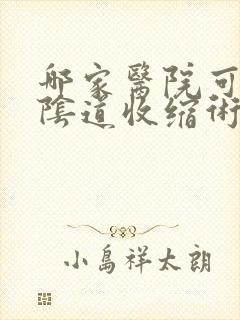 哪家醫院可
陰道收缩術
小島祥太朗